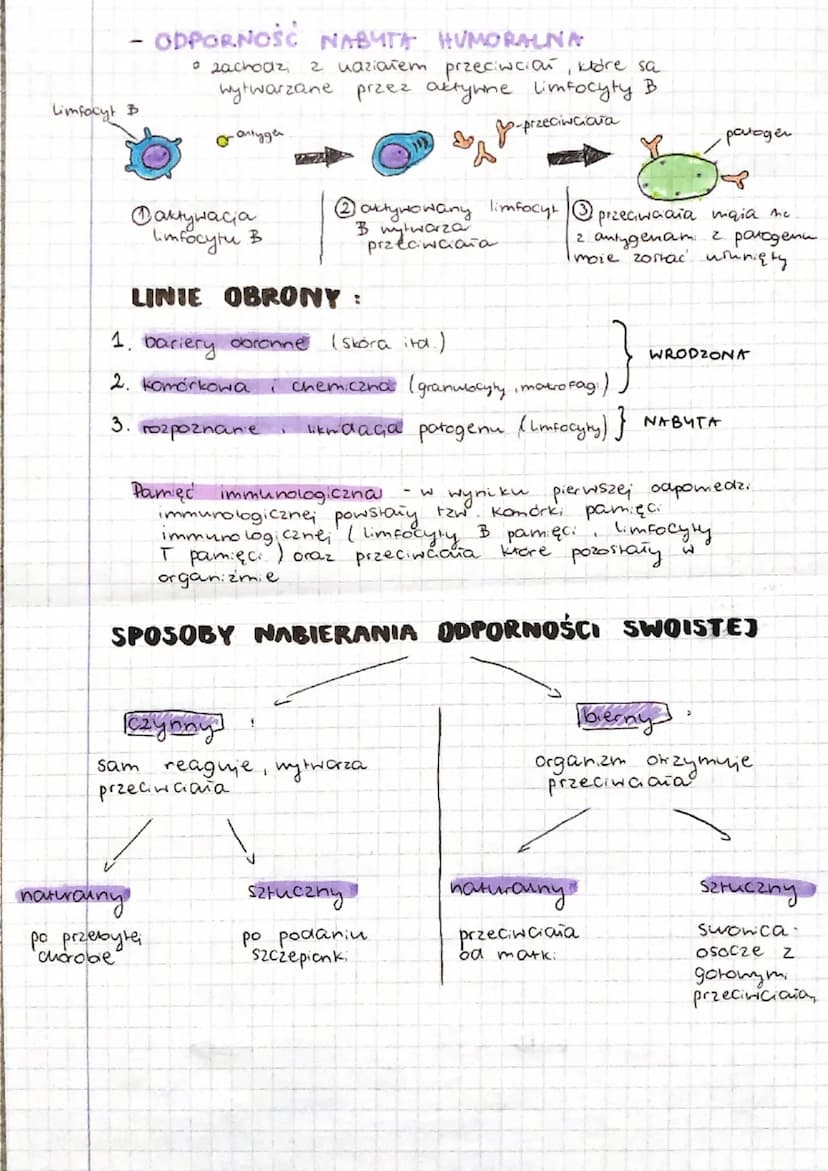 - ODPORNOŚĆ NABYTA HUMORALNA
° zachodzi z udziałem przeciwciał, które są
wytwarzane przez aktywne limfocyty B
limfocyt B
antygen
przeciwciała
patogen
① aktywacja
limfocytu B
② aktywowany limfocyt
B wytwarza
przeciwciała
③ przeciwciała
z antygenami z patogenu
może zostać usunięty
LINIE OBRONY :
1. bariery obronne (skóra itd.)
2. komórkowa i chemiczna (granulocyty, makrofagi)
WRODZONA
3. rozpoznanie i likwidacja patogenu (limfocyty)
NABYTA
Pamięć immunologiczna - w wyniku pierwszej odpowiedzi
immunologicznej powstały tzw. komórki pamięci
immunologicznej (limfocyty B pamięci, limfocyty
T pamięci) oraz przeciwciała które pozostały w
organizmie
SPOSOBY NABIERANIA ODPORNOŚCI SWOISTEJ
czynny :
sam reaguje, wytwarza
przeciwciała
bierny :
organizm otrzymuje
przeciwciała
naturalny
po przebytej
chorobie
sztuczny
po podaniu
szczepionki
naturalny
przeciwciała
od matki
sztuczny
surowica -
osocze z
gotowymi
przeciwciała